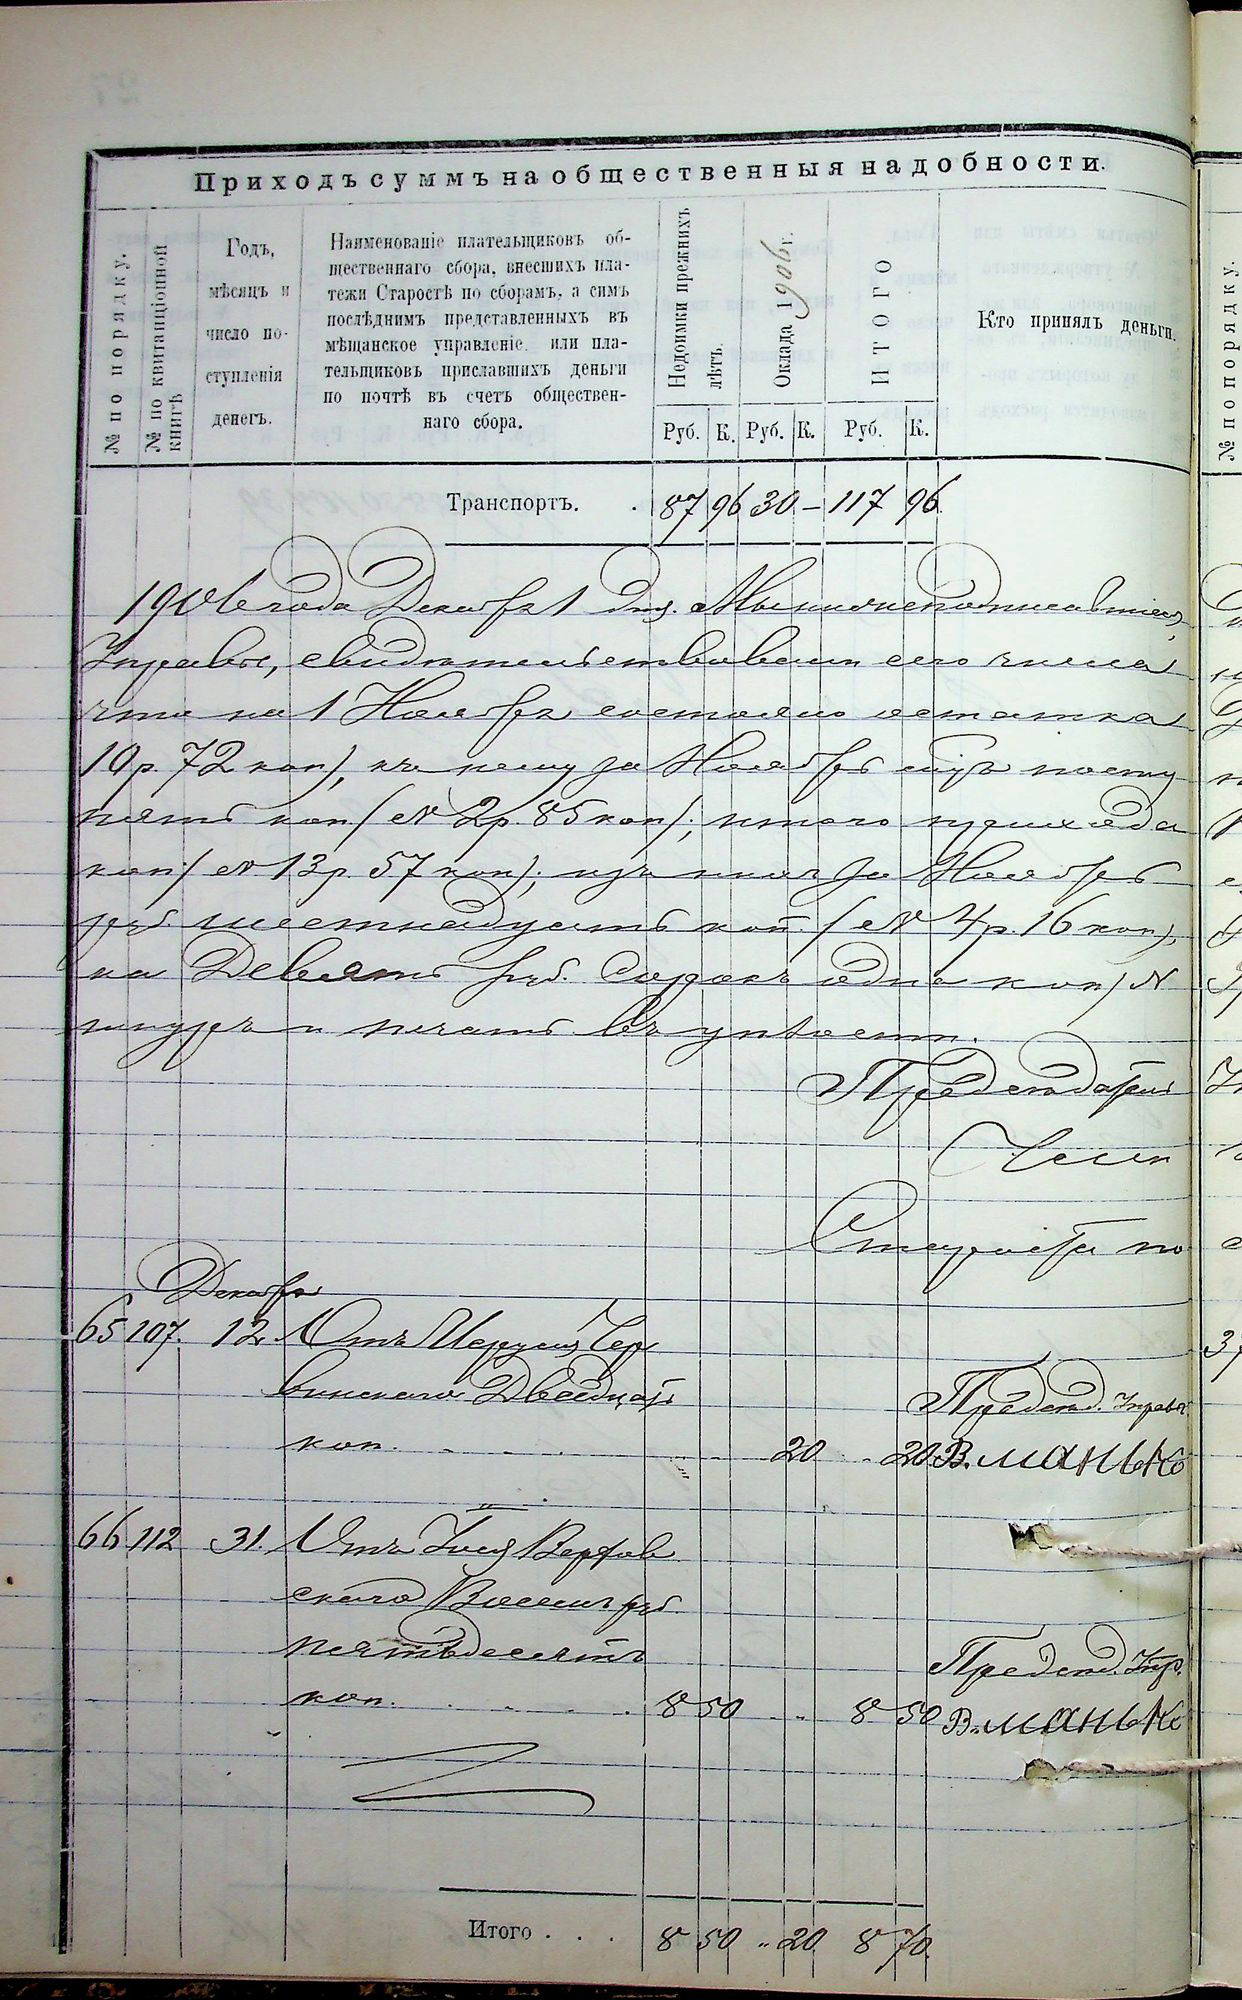 Приходъ суммъ на общественныя надобности.
№ по порядку.
№ по квитанціонной книгѣ
Годъ,
мѣсяцъ и
число по-
ступленія
денегъ.
Наименованіе плательщиковъ об-
щественнаго сбора, внесшихъ пла-
тежи Старостѣ по сборамъ, а симъ
послѣднимъ представленныхъ въ
мѣщанское управленіе, или пла-
тельщиковъ приславшихъ деньги
по почтѣ въ счетъ обществен-
наго сбора.
Недоимки прежнихъ
лѣтъ.
Оклада 1906 г.
ИТОГО
Кто принялъ деньги.
Руб. К. Руб. К. Руб. К.
Транспортъ. . 87 96 30 — 117 96
1906 года Декабря 1 дня. Мы нижеподписавшіеся,
Управы, свидѣтельствовали сего числа
что на 1 Ноября состояло остатка
10 р. 72 коп), къ нему за Ноябрь мѣс. посту
пять коп (№ 2 р. 85 коп); итого прихода
коп (№ 13 р. 57 коп); изъ нихъ за Ноябрь
руб. шестнадцать коп. (№ 4 р. 16 коп),
ка Девять руб. Сорокъ одна коп) №
шнуръ и печать въ цѣлости.
Предсѣдатель
Члены
Староста по
Декабря
65 107. 12 Отъ Чер
винскаго Двадцать Предсѣд. Управы
коп. . . . 20 20 В. Манько
66 112 31. Отъ
скаго Восемь руб
пятьдесятъ Предсѣд. Упр.
коп. . . . . 8 50 . . 8 50 В. Манько
Итого . . . 8 50 „ 20 8 70
№ по порядку.